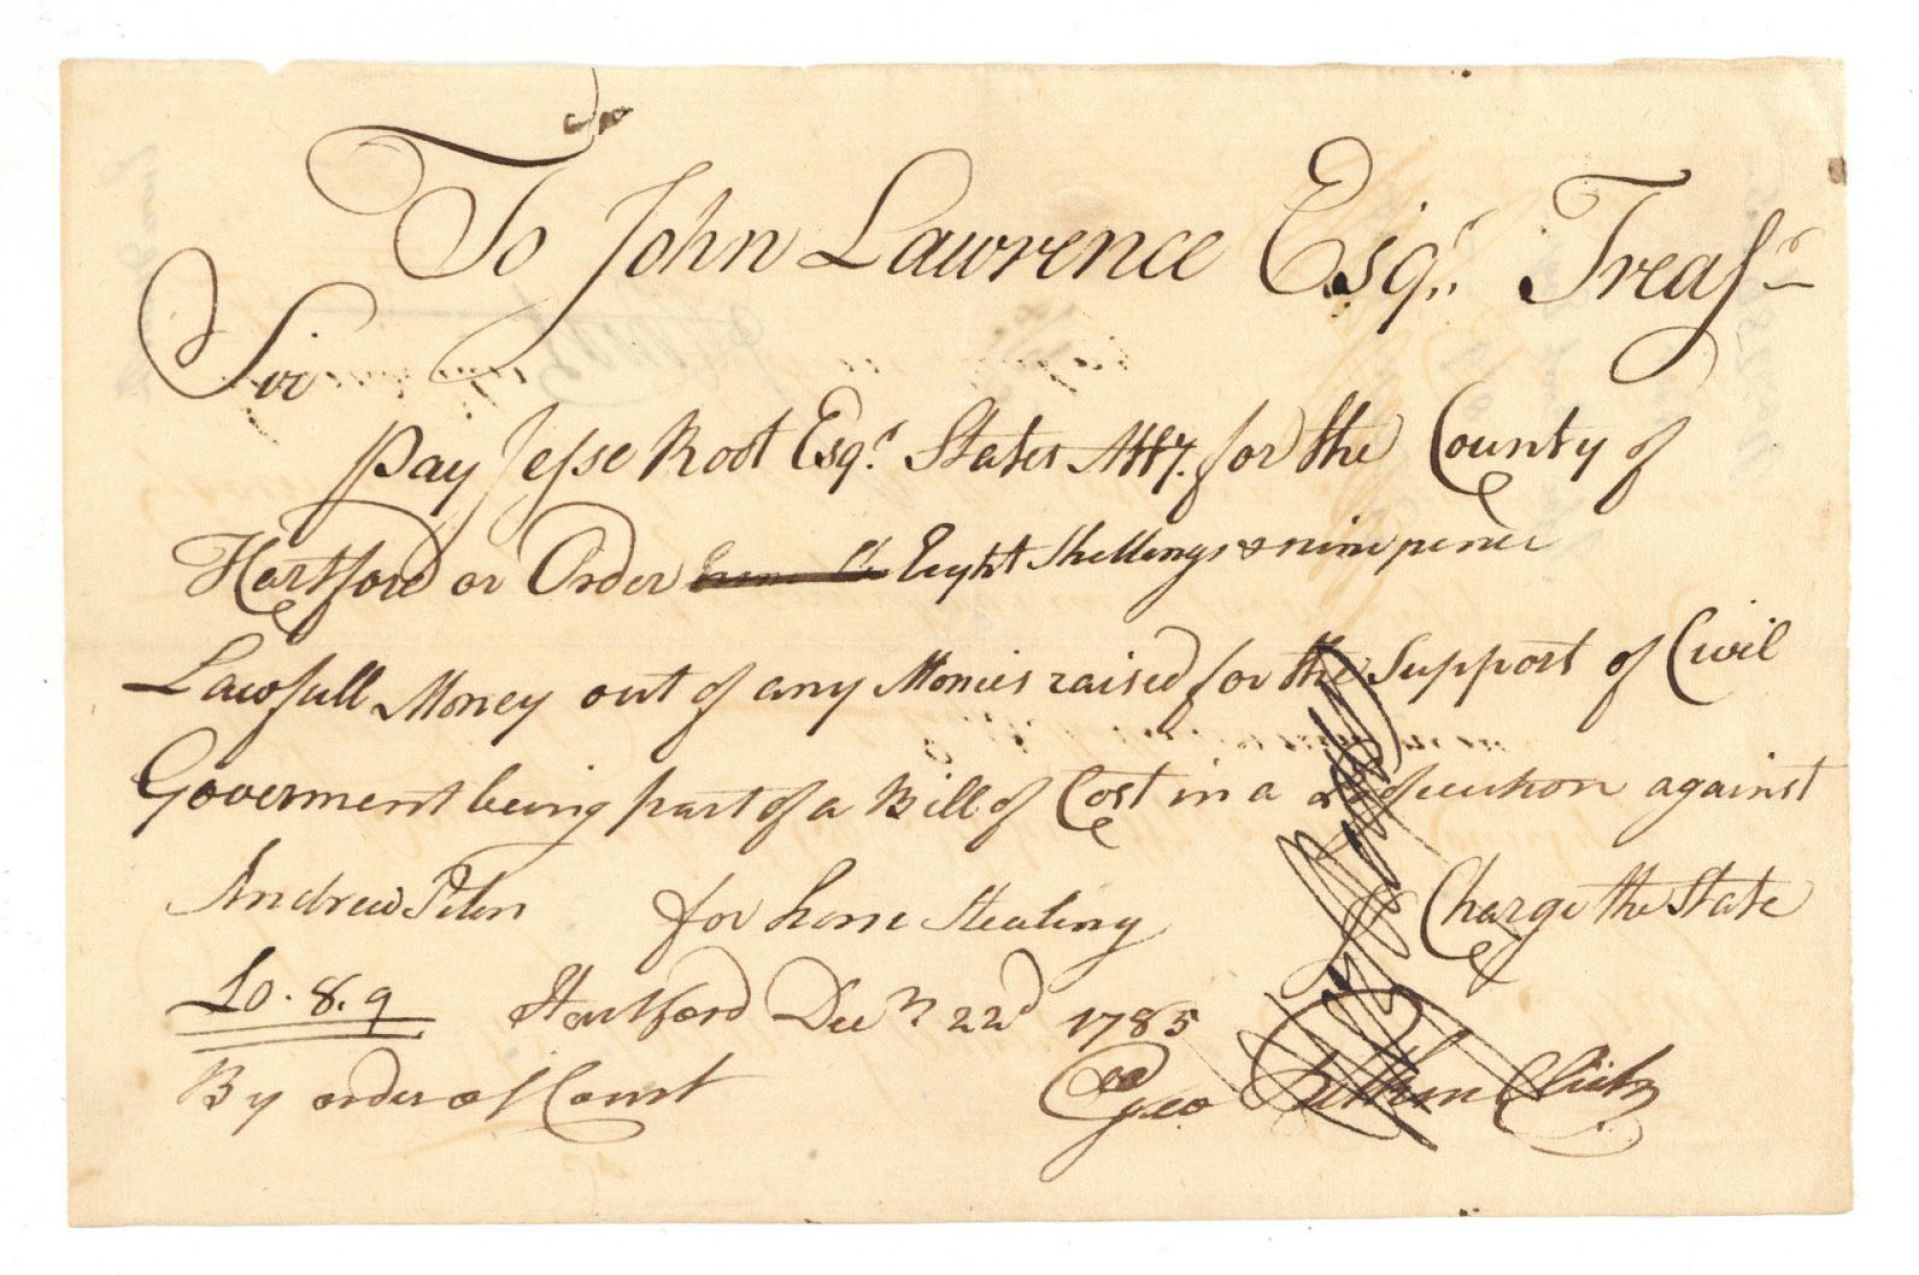 To John Lawrence Esqr. Treasr
Sir
Pay Jesse Root Esqr. States Atty. for the County of
Hartford or Order Eight Shillings & nine pence
Lawfull Money out of any Monies raised for the Support of Civil
Goverment being part of a Bill of Cost in a prosecution against
Andrew for horse Stealing Charge the State
£0.8.9 Hartford Decr 22d 1785
By order of Court Geo Pitkin Clerk